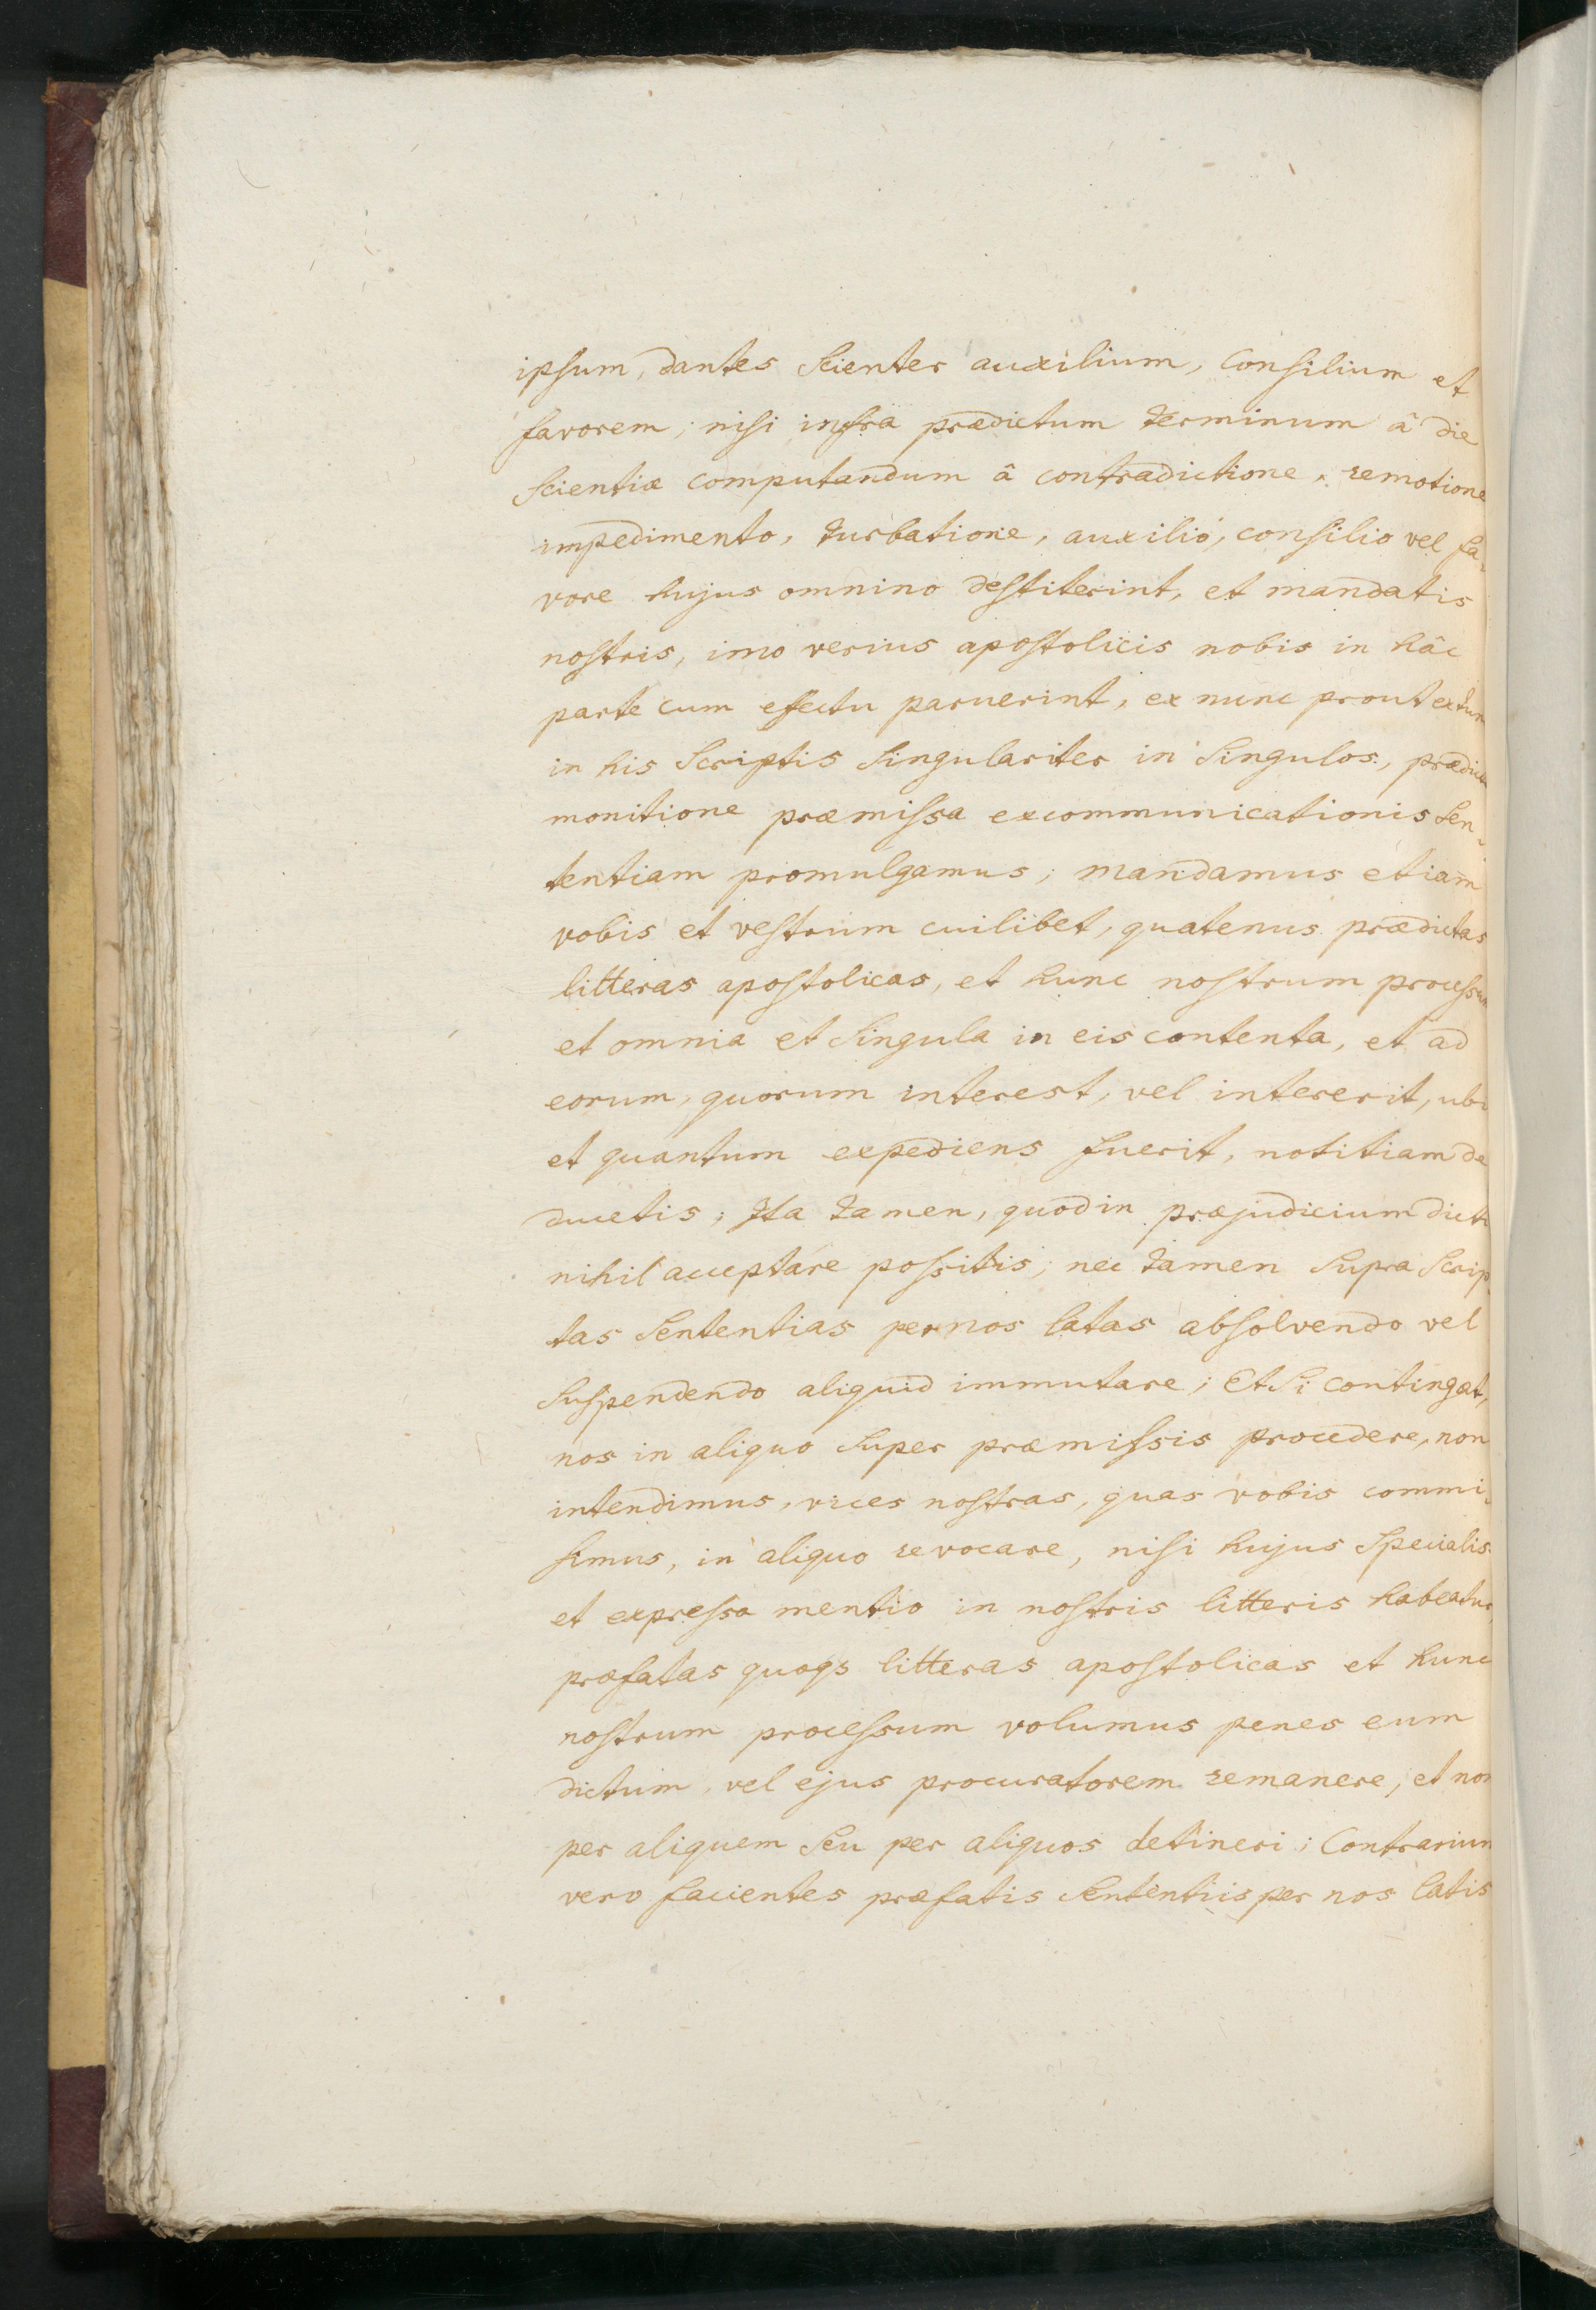 ipsum, dantes Scienter auxilium, Consilium et
favorem; nisi infra prædictum terminum â die
Scientiæ computandum â contradictione, remotione
impedimento, turbatione, auxilio, consilio vel fa-
vore hujus omnino destiterint, et mandatis
nostris, imo verius apostolicis nobis in hâc
parte cum efectu paruerint, ex nunc prout ex tun
in his Scriptis Singulariter in Singulos, prædict
monitione præmissa excommunicationis Sen-
tentiam promulgamus; mandamus etiam
vobis et vestrum cuilibet, quatenus prædictas
litteras apostolicas, et hunc nostrum processum
et omnia et Singula in eis contenta, et ad
eorum, quorum interest, vel intererit, ubi
et quantum expediens fuerit, notitiam de
ducetis; Ita tamen, quod in præjudicium dicti
nihil acceptare possitis; nec tamen Supra Scrip-
tas Sententias per nos latas absolvendo vel
Suspendendo aliquid immutare; Et Si contingat,
nos in aliquo Super præmissis procedere, non
intendimus, vices nostras, quas vobis commi-
simus, in aliquo revocare, nisi hujus Specialis
et expressa mentio in nostris litteris habeatur,
præfatas quoqs litteras apostolicas et hunc
nostrum processum volumus penes eum
dictum, vel ejus procuratorem remanere, et non
per aliquem Seu per aliquos detineri; Contrarium
vero facientes præfatis Sententiis per nos latis